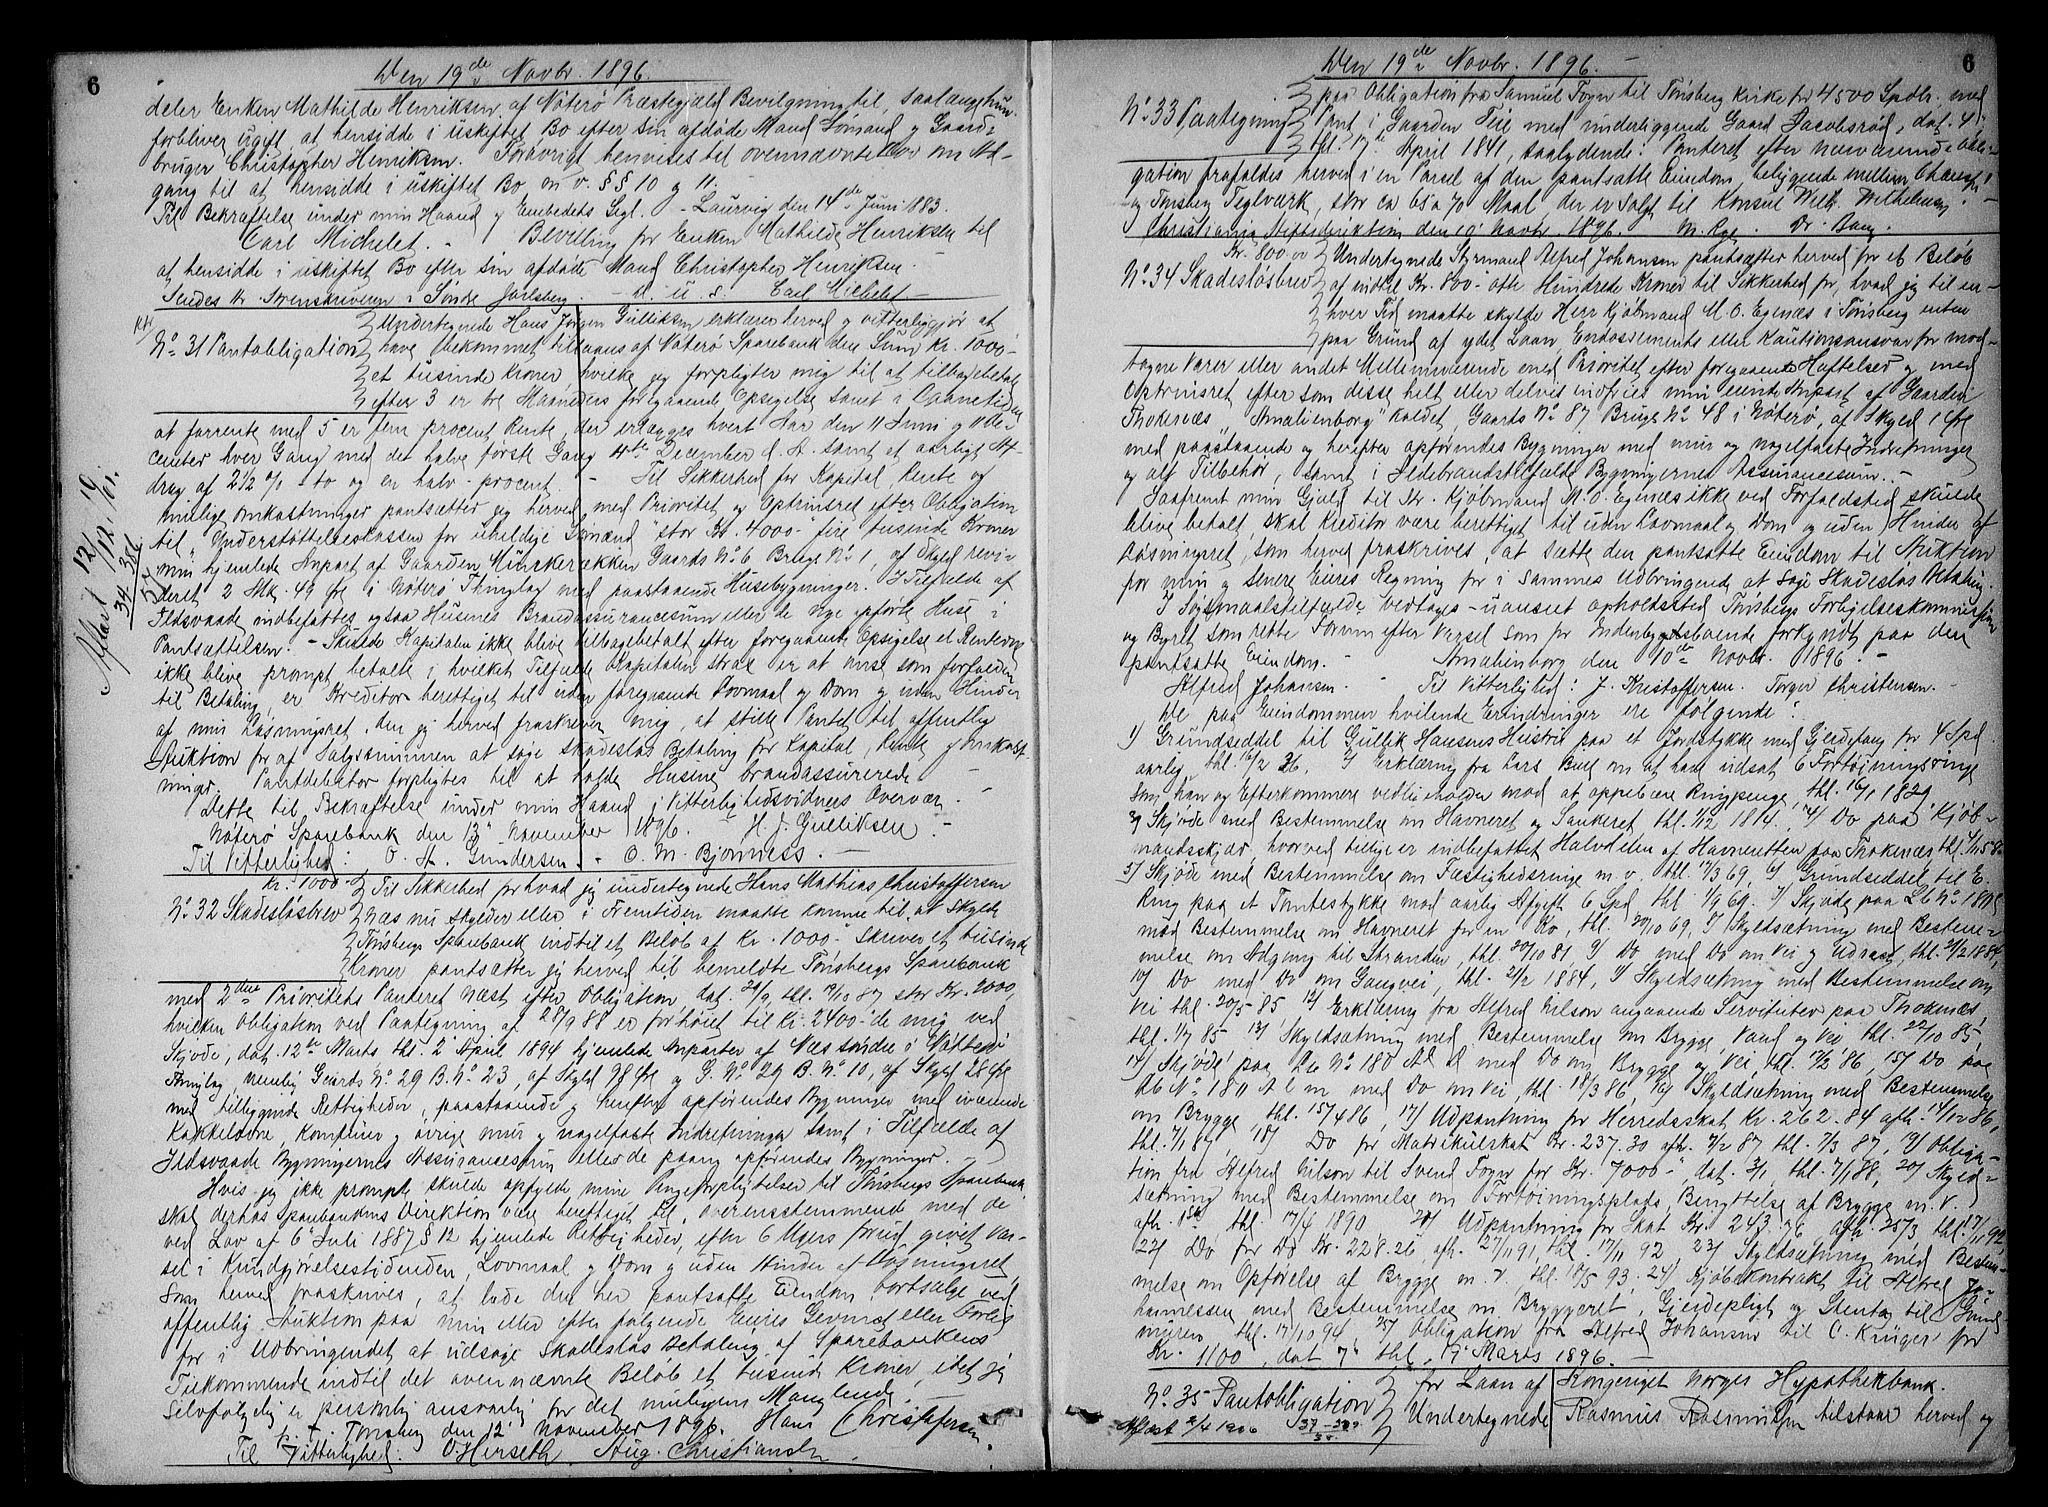 6
Den 19de Novbr. 1896.
deler Enken Mathilde Henriksen af Nøterø Præstegjeld Bevilgning til, saalænge hun
forbliver ugift, at hensidde i uskiftet Bo efter sin afdøde Mand Sømand og Gaard-
bruger Christopher Henriksen. Forøvrigt henvises til ovennævnte Lov om Ad-
gang til at hensidde i uskiftet Bo, §§ 10 og 11.
Til Bekræftelse under min Haand og Embedets Segl. - Laurvig den 14de Juni 1883.
Carl Michelet. - Bevilling for Enken Mathilde Henriksen til
at hensidde i uskiftet Bo efter sin afdøde Mand Christopher Henriksen.
Sendes Hr. Sorenskriveren i Søndre Jarlsberg. - D. u. s. Carl Michelet -
No 31 Pantobligation
Undertegnede Hans Jørgen Gulliksen erklærer herved og vitterliggjør at
have bekommet tillaans af Nøterø Sparebank den Sum Kr. 1000-
et tusinde Kroner, hvilke jeg forpligter mig til at tilbagebetale
efter 3 er tre Maaneders foregaaende Opsigelse samt i Laanetiden
at forrente med 5 er fem procent Rente, der erlægges hvert Aar den 11 Juni og 11 De-
cember hver Gang med det halve første Gang 11te December d. A. samt et aarligt Af-
drag af 2 1/2 % - to og en halv - procent. - Til Sikkerhed for Kapital, Rente og
mulige Omkostninger pantsætter jeg herved med Prioritet og Optrinsret efter Obligation
til "Understøttelseskassen for uheldige Sømænd" stor Kr. 4000- fire tusende Kroner
min hjemlede Anpart af Gaarden Munkerækken Gaards No 6 Brugs No 1, af Skyld revi-
deret 2 Mk. 49 Øre i Nøterø Thinglag med paastaaende Husebygninger. I Tilfælde af
Ildsvaade indbefattes ogsaa Husenes Brandassurancesum eller de nye opførte Huse i
Pantsættelsen. - Skulde Kapitalen ikke blive tilbagebetalt efter foregaaende Opsigelse el Renterne
ikke blive prompt betalte i hvilket Tilfælde Kapitalen strax er at anse som forfalden
til Betaling, er Kreditor berettiget til uden foregaaende Lovmaal og Dom og uden Hinder
af min Løsningsret, den jeg herved fraskriver mig, at stille Pantet til offentlig
Auktion for af Salgssummen at søge skadesløs Betaling for Kapital, Rente og Omkost-
ninger. Pantdebitor forpligtes til at holde Husene brandassurerede -
Dette til Bekræftelse under min Haand i Vitterlighedsvidners Overvær. -
Nøterø Sparebank den 13de November 1896. H. J. Gulliksen. -
Til Vitterlighed: O. A. Gundersen. - O. M. Bjønness. -
Kr. 1000-
No 32 Skadesløsbrev
Til Sikkerhed for hvad jeg undertegnede Hans Mathias Christoffersen
Næs nu skylder eller i Fremtiden maatte komme til at skylde
Tønsbergs Sparebank indtil et Beløb af Kr. 1000- skriver et tusinde
Kroner pantsætter jeg herved til bemeldte Tønsbergs Sparebank
med 2den Prioritets Panteret næst efter Obligation dat. 24/9, thl. 19/10 87 stor Kr. 2000,
hvilken Obligation ved Paategning af 28/9 88 er forhøiet til Kr. 2400- de mig ved
Skjøde, dat. 12te Marts thl. 2 April 1894 hjemlede Anparter af Næs søndre i Nøtterø
Thinglag, nemlig Gaards No 29 B. No 23, af Skyld 98 Øre og G. No 29 B. No 10, af Skyld 28 Øre
med tilliggende Rettigheder, paastaaende og herefter opførendes Bygninger med iværende
Kakkelovne, Komfurer og øvrige mur og nagelfaste Indretninger samt i Tilfælde af
Ildsvaade Bygningernes Assurancesum eller de paany opførendes Bygninger. -
Hvis jeg ikke prompte skulde opfylde mine Pengeforpligtelser til Tønsbergs Sparebank,
skal derhos Sparebankens Direktion være berettiget til, overensstemmende med de
ved Lov af 6 Juli 1887 § 12 hjemlede Rettigheder, efter 6 Ugers forud givet Var-
sel i Kundgjørelsestidenden, Lovmaal og Dom og uden Hinder af Løsningsret,
som herved fraskrives, at lade den her pantsatte Eiendom bortsælge ved
offentlig Auktion paa min eller efterfølgende Eieres Gevinst eller Forlis
for i Udbringendet at udsøge Skadesløs Betaling af Sparebankens
Tilkommende indtil det ovennævnte Beløb et tusinde Kroner, idet jeg
selvfølgelig er personlig ansvarlig for det muligens Manglende.
p. t. Tønsberg den 12 November 1896. Hans Christoffersen.
Til Vitterlighed: O. Herseth. Aug. Christiansen
6
Den 19de Novbr. 1896. -
No 33 Paategning
paa Obligation fra Samuel Foyn til Tønsberg Kirke for 4500 Spdlr. med
Pant i Gaarden Teie med underliggende Gaard Jacobsrød, dat. 4,
thl. 17de April 1841, saalydende: Panteret efter nærværende Obli-
gation frafaldes herved i en Parsel af den pantsatte Eiendom, beliggende mellem
og Tønsberg Teglværk, stor ca 65 a 70 Maal, der er solgt til Konsul Wilh. Wilhelmsen. -
Christiania Stiftsdirektion den Novbr. 1896. M. Rye. Dr. Bang.
Kr. 800.00
No 34 Skadesløsbrev
Undertegnede Styrmand Alfred Johansen pantsætter herved for et Beløb
af indtil Kr. 800- otte Hundrede Kroner til Sikkerhed for, hvad jeg til en-
hver Tid maatte skylde Herr Kjøbmand M. O. Egenæs i Tønsberg enten
paa Grund af ydet Laan, Endossements eller Kautionsansvar for mod-
tagne Varer eller andet Mellemværende med Prioritet efter foregaaende Heftelser og med
Optrinsret efter som disse helt eller delvis indfries min eiende Anpart af Gaarden
Thokenæs "Amalienborg" kaldet, Gaards No 87, Brugs No 48 i Nøterø, af Skyld 1 Øre
med paastaaende og herefter opførendes Bygninger med mur og nagelfaste Indretninger
og alt Tilbehør, samt i Ildebrandstilfælde Bygningernes Assurancesum. -
Saafremt min Gjæld til Hr. Kjøbmand M. O. Egenæs ikke ved Forfaldstid skulde
blive betalt, skal Kreditor være berettiget til uden Lovmaal og Dom og uden Hinder af
Løsningsret, som herved fraskrives, at sætte den pantsatte Eiendom til Auktion
for min og senere Eieres Regning for i sammes Udbringende at søge Skadesløs Betaling.
I Søgsmaalstilfælde vedtages - uanseet opholdssted Tønsbergs Forligelseskommission
og Byret som rette Forum efter Varsel som for Indenbygdsboende forkyndt paa den
pantsatte Eiendom. - Amalienborg den 10de Novbr. 1896. -
Alfred Johansen. - Til Vitterlighed: J. Kristoffersen. Torger Christensen. -
De paa Eiendommen hvilende Erindringer ere følgende:
1) Grundseddel til Gullik Hansens Hustru paa et Jordstykke med Gjerdefang for 4 Spd
aarlig, thl. 16/2 26. 2) Erklæring fra Lars Bull om at have udsat 6 Fortøiningsringe
som han og Efterkommere vedligeholder mod at oppebære Ringpenge, thl. 16/1 1829
3) Skjøde med Bestemmelse om Havneret og Tankeret, thl. 1/2 1814. 4) Do paa Kjøb-
mandsskjær, hvorved tillige er indbefattet Halvdelen af Havneretten paa Thokenæs
5) Skjøde med Bestemmelse om Fæstighedsringe m. v. thl. 17/3 69, 6) Grundseddel til E.
Ring paa et Tomtestykke mod aarlig Afgift 6 Spd thl. 1/9 69. 7) Skjøde paa
med Bestemmelse om Havneret for en Ko, thl. 20/10 69, 8) Skyldsætning med Bestem-
melse om Adgang til Stranden, thl. 20/10 81, 9) Do med Do om Vei og Udrast, thl. 21/2 1884,
10) Do med Do om Gangvei, thl. 21/2 1884, 11) Skyldsætning med Bestemmelse om
Vei thl. 20/5 85 12) Erklæring fra Alfred Wilson angaaende Servituter paa Thokenæs,
thl. 1/7 85 13) Skyldsætning med Bestemmelse om Brygge, Vand og Vei thl. 22/10 85,
14) Skjøde paa Lb No 180 med Do om Brygge og Vei, thl. 17/2 86, 15) Do paa
Lb No 18 med Do om Vei, thl. 18/3 86, 16) Skyldsætning med Bestemmelse
om Brygge, thl. 15/4 86, 17) Udpantning for Herredsskat Kr. 262.84 afh. 14/12 86,
thl. 7/1 87, 18) Do for Matrikulskat Kr. 237.30 afh. 9/2 87 thl. 7/3 87, 19) Obliga-
tion fra Alfred Wilson til Svend Foyn for Kr. 7000- dat. 3/1, thl. 7/1 88, 20) Skyld-
sætning med Bestemmelse om Fortøiningsplads, Benyttelse af Brygge m. v.
thl. 17/4 1890 21) Udpantning for Skat Kr. 243.76 afh. 25/3, thl. 17/11 92
22) Do for Do Kr. 228.26, afh. 27/11 91, thl. 17/11 92, 23) Skyldsætning med Bestem-
melse om Opførelse af Brygge m. v. thl. 17/5 93. 24) Kjøbekontrakt til Alfred Jo-
hannessen med Bestemmelse om Bryggeret, Gjerdepligt og Stentag til Grund-
muren, thl. 17/10 94, 25) Obligation fra Alfred Johansen til O. Krüger for
Kr. 1100, dat 7de thl. 9de Marts 1896. -
No 35 Pantobligation
for Laan af Kongeriget Norges Hypothekbank.
Undertegnede Rasmus Rasmussen tilstaar herved og
Aflæst 2/4 1906